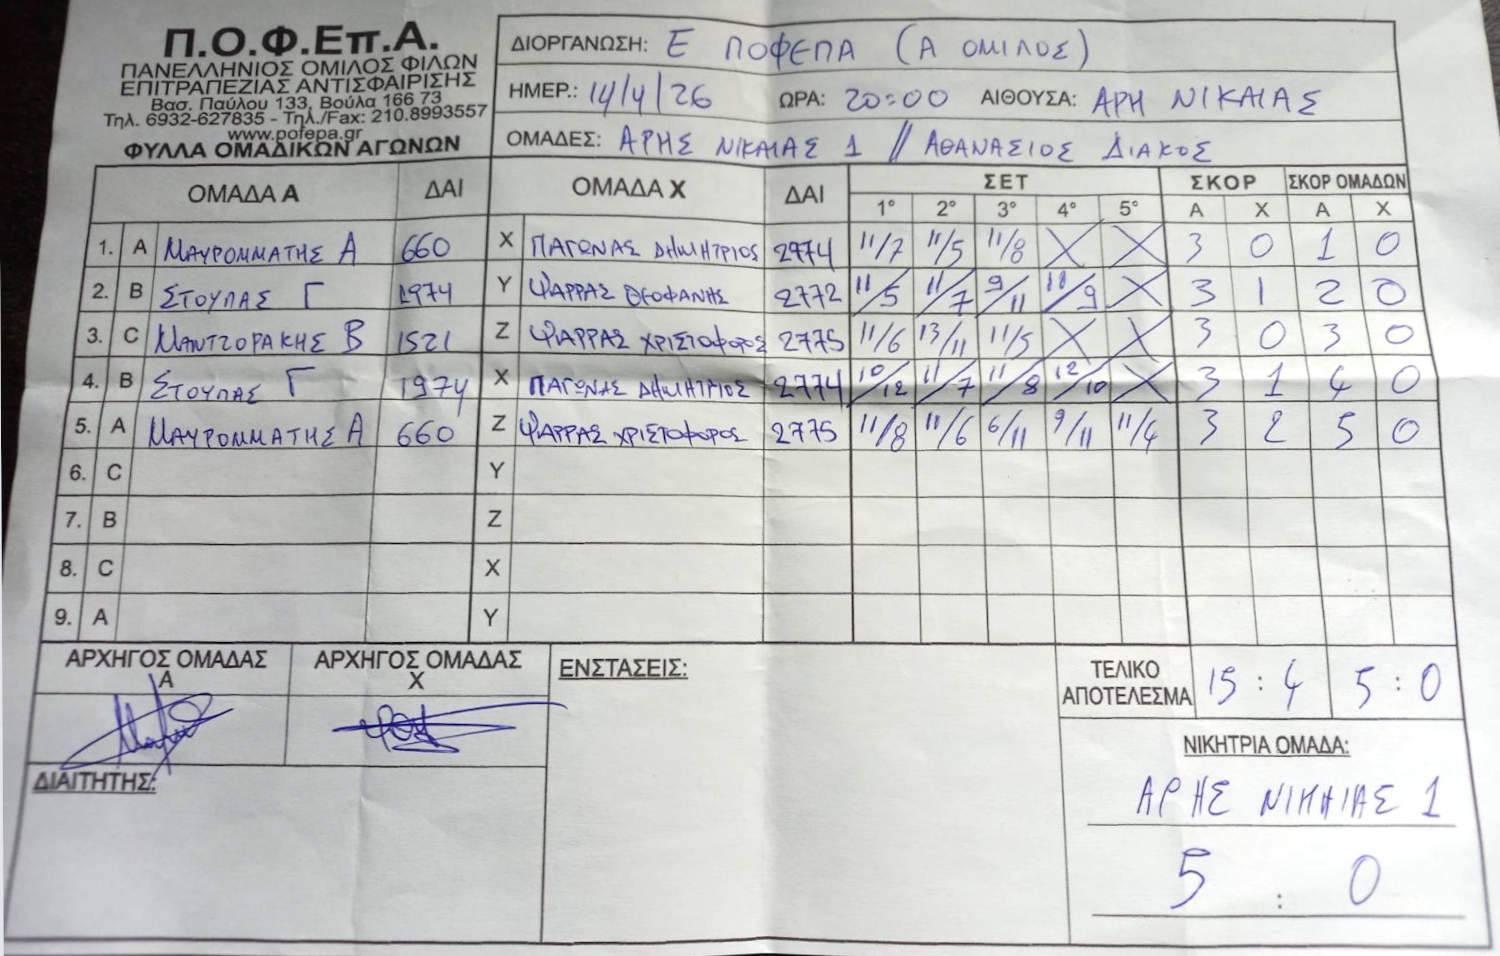 Π.Ο.Φ.Επ.Α.
ΠΑΝΕΛΛΗΝΙΟΣ ΟΜΙΛΟΣ ΦΙΛΩΝ
ΕΠΙΤΡΑΠΕΖΙΑΣ ΑΝΤΙΣΦΑΙΡΙΣΗΣ
Βασ. Παύλου 133, Βούλα 166 73
Τηλ. 6932-627835 - Τηλ./Fax: 210.8993557
www.pofepa.gr
ΦΥΛΛΑ ΟΜΑΔΙΚΩΝ ΑΓΩΝΩΝ
ΔΙΟΡΓΑΝΩΣΗ: Ε ΠΟΦΕΠΑ (Α ΟΜΙΛΟΣ)
ΗΜΕΡ.: 14/4/26 ΩΡΑ: 20:00 ΑΙΘΟΥΣΑ: ΑΡΗ ΝΙΚΑΙΑΣ
ΟΜΑΔΕΣ: ΑΡΗΣ ΝΙΚΑΙΑΣ 1 // ΑΘΑΝΑΣΙΟΣ ΔΙΑΚΟΣ
ΟΜΑΔΑ Α ΔΑΙ ΟΜΑΔΑ Χ ΔΑΙ ΣΕΤ ΣΚΟΡ ΣΚΟΡ ΟΜΑΔΩΝ
1° 2° 3° 4° 5° Α Χ Α Χ
1. A ΜΑΥΡΟΜΜΑΤΗΣ Α 660 X ΠΑΓΩΝΑΣ ΔΗΜΗΤΡΙΟΣ 2774 11/7 11/5 11/8 X X 3 0 1 0
2. B ΣΤΟΥΠΑΣ Γ 1974 Y ΨΑΡΡΑΣ ΘΕΟΦΑΝΗΣ 2772 11/5 11/7 9/11 10/9 X 3 1 2 0
3. C ΜΑΝΤΖΟΡΑΚΗΣ Β 1521 Z ΨΑΡΡΑΣ ΧΡΙΣΤΟΦΟΡΟΣ 2775 11/6 13/11 11/5 X X 3 0 3 0
4. B ΣΤΟΥΠΑΣ Γ 1974 X ΠΑΓΩΝΑΣ ΔΗΜΗΤΡΙΟΣ 2774 10/12 11/7 11/8 12/10 X 3 1 4 0
5. A ΜΑΥΡΟΜΜΑΤΗΣ Α 660 Z ΨΑΡΡΑΣ ΧΡΙΣΤΟΦΟΡΟΣ 2775 11/8 11/6 6/11 9/11 11/4 3 2 5 0
6. C Y
7. B Z
8. C X
9. A Y
ΑΡΧΗΓΟΣ ΟΜΑΔΑΣ Α ΑΡΧΗΓΟΣ ΟΜΑΔΑΣ Χ ΕΝΣΤΑΣΕΙΣ:
ΤΕΛΙΚΟ ΑΠΟΤΕΛΕΣΜΑ 15 : 4 5 : 0
ΔΙΑΙΤΗΤΗΣ:
ΝΙΚΗΤΡΙΑ ΟΜΑΔΑ:
ΑΡΗΣ ΝΙΚΑΙΑΣ 1
5 : 0